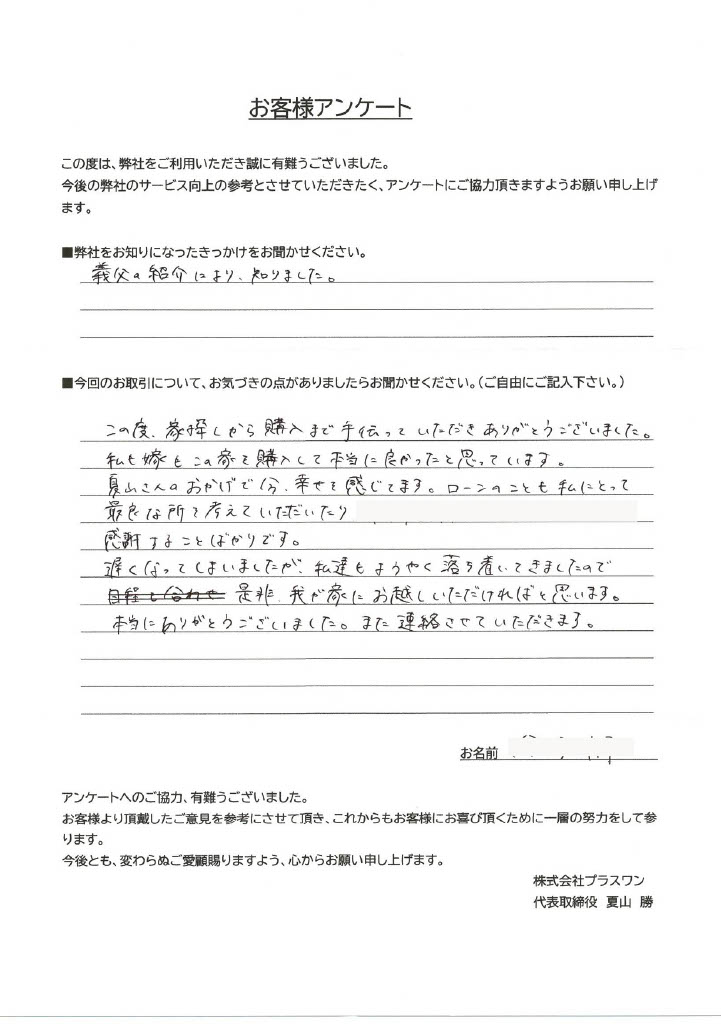 お客様アンケート
この度は、弊社をご利用いただき誠に有難うございました。
今後の弊社のサービス向上の参考とさせていただきたく、アンケートにご協力頂きますようお願い申し上げ
ます。
■弊社をお知りになったきっかけをお聞かせください。
義父の紹介により、知りました。
■今回のお取引について、お気づきの点がありましたらお聞かせください。(ご自由にご記入下さい。)
この度、家探しから購入まで手伝っていただきありがとうございました。
私も嫁もこの家を購入して本当に良かったと思っています。
夏山さんのおかげで今、幸せを感じてます。ローンのことも私にとって
最良な所を考えていただいたり
感謝することばかりです。
遅くなってしまいましたが、私達もようやく落ち着いてきましたので
日程も合わせ 是非、我が家にお越しいただければと思います。
本当にありがとうございました。また連絡させていただきます。
お名前
アンケートへのご協力、有難うございました。
お客様より頂戴したご意見を参考にさせて頂き、これからもお客様にお喜び頂くために一層の努力をして参
ります。
今後とも、変わらぬご愛顧賜りますよう、心からお願い申し上げます。
株式会社プラスワン
代表取締役 夏山 勝